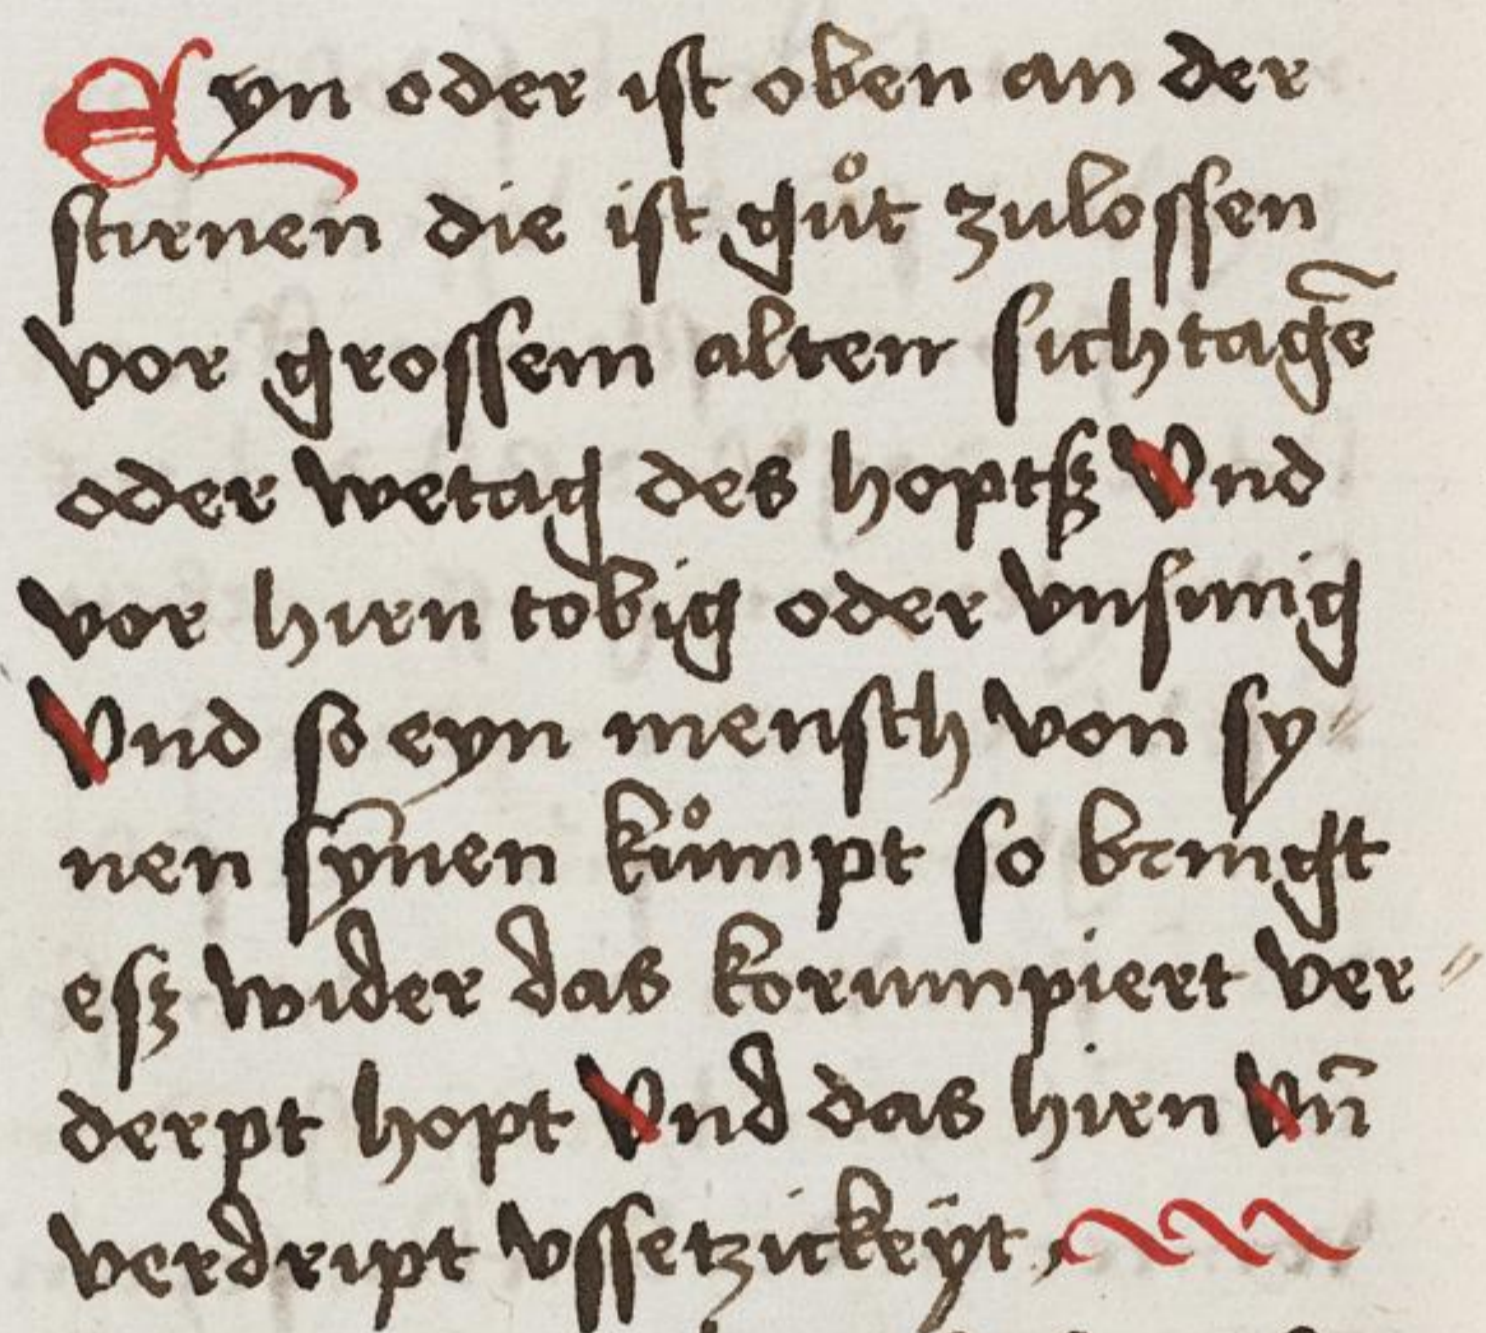 Eyn oder ist oben an der
stirnen die ist gůt zulossen
vor grossem alten sichtagē
oder wetag des hoptsz Vnd
vor hirn tobig oder vnsinnig
Vnd so eyn mensch von sy〃
nen sȳnen ků̊mpt so bringt
esz wider das korumpiert ver〃
derpt hopt Vnd das hirn Vn̄
verdript vssetzickeÿt